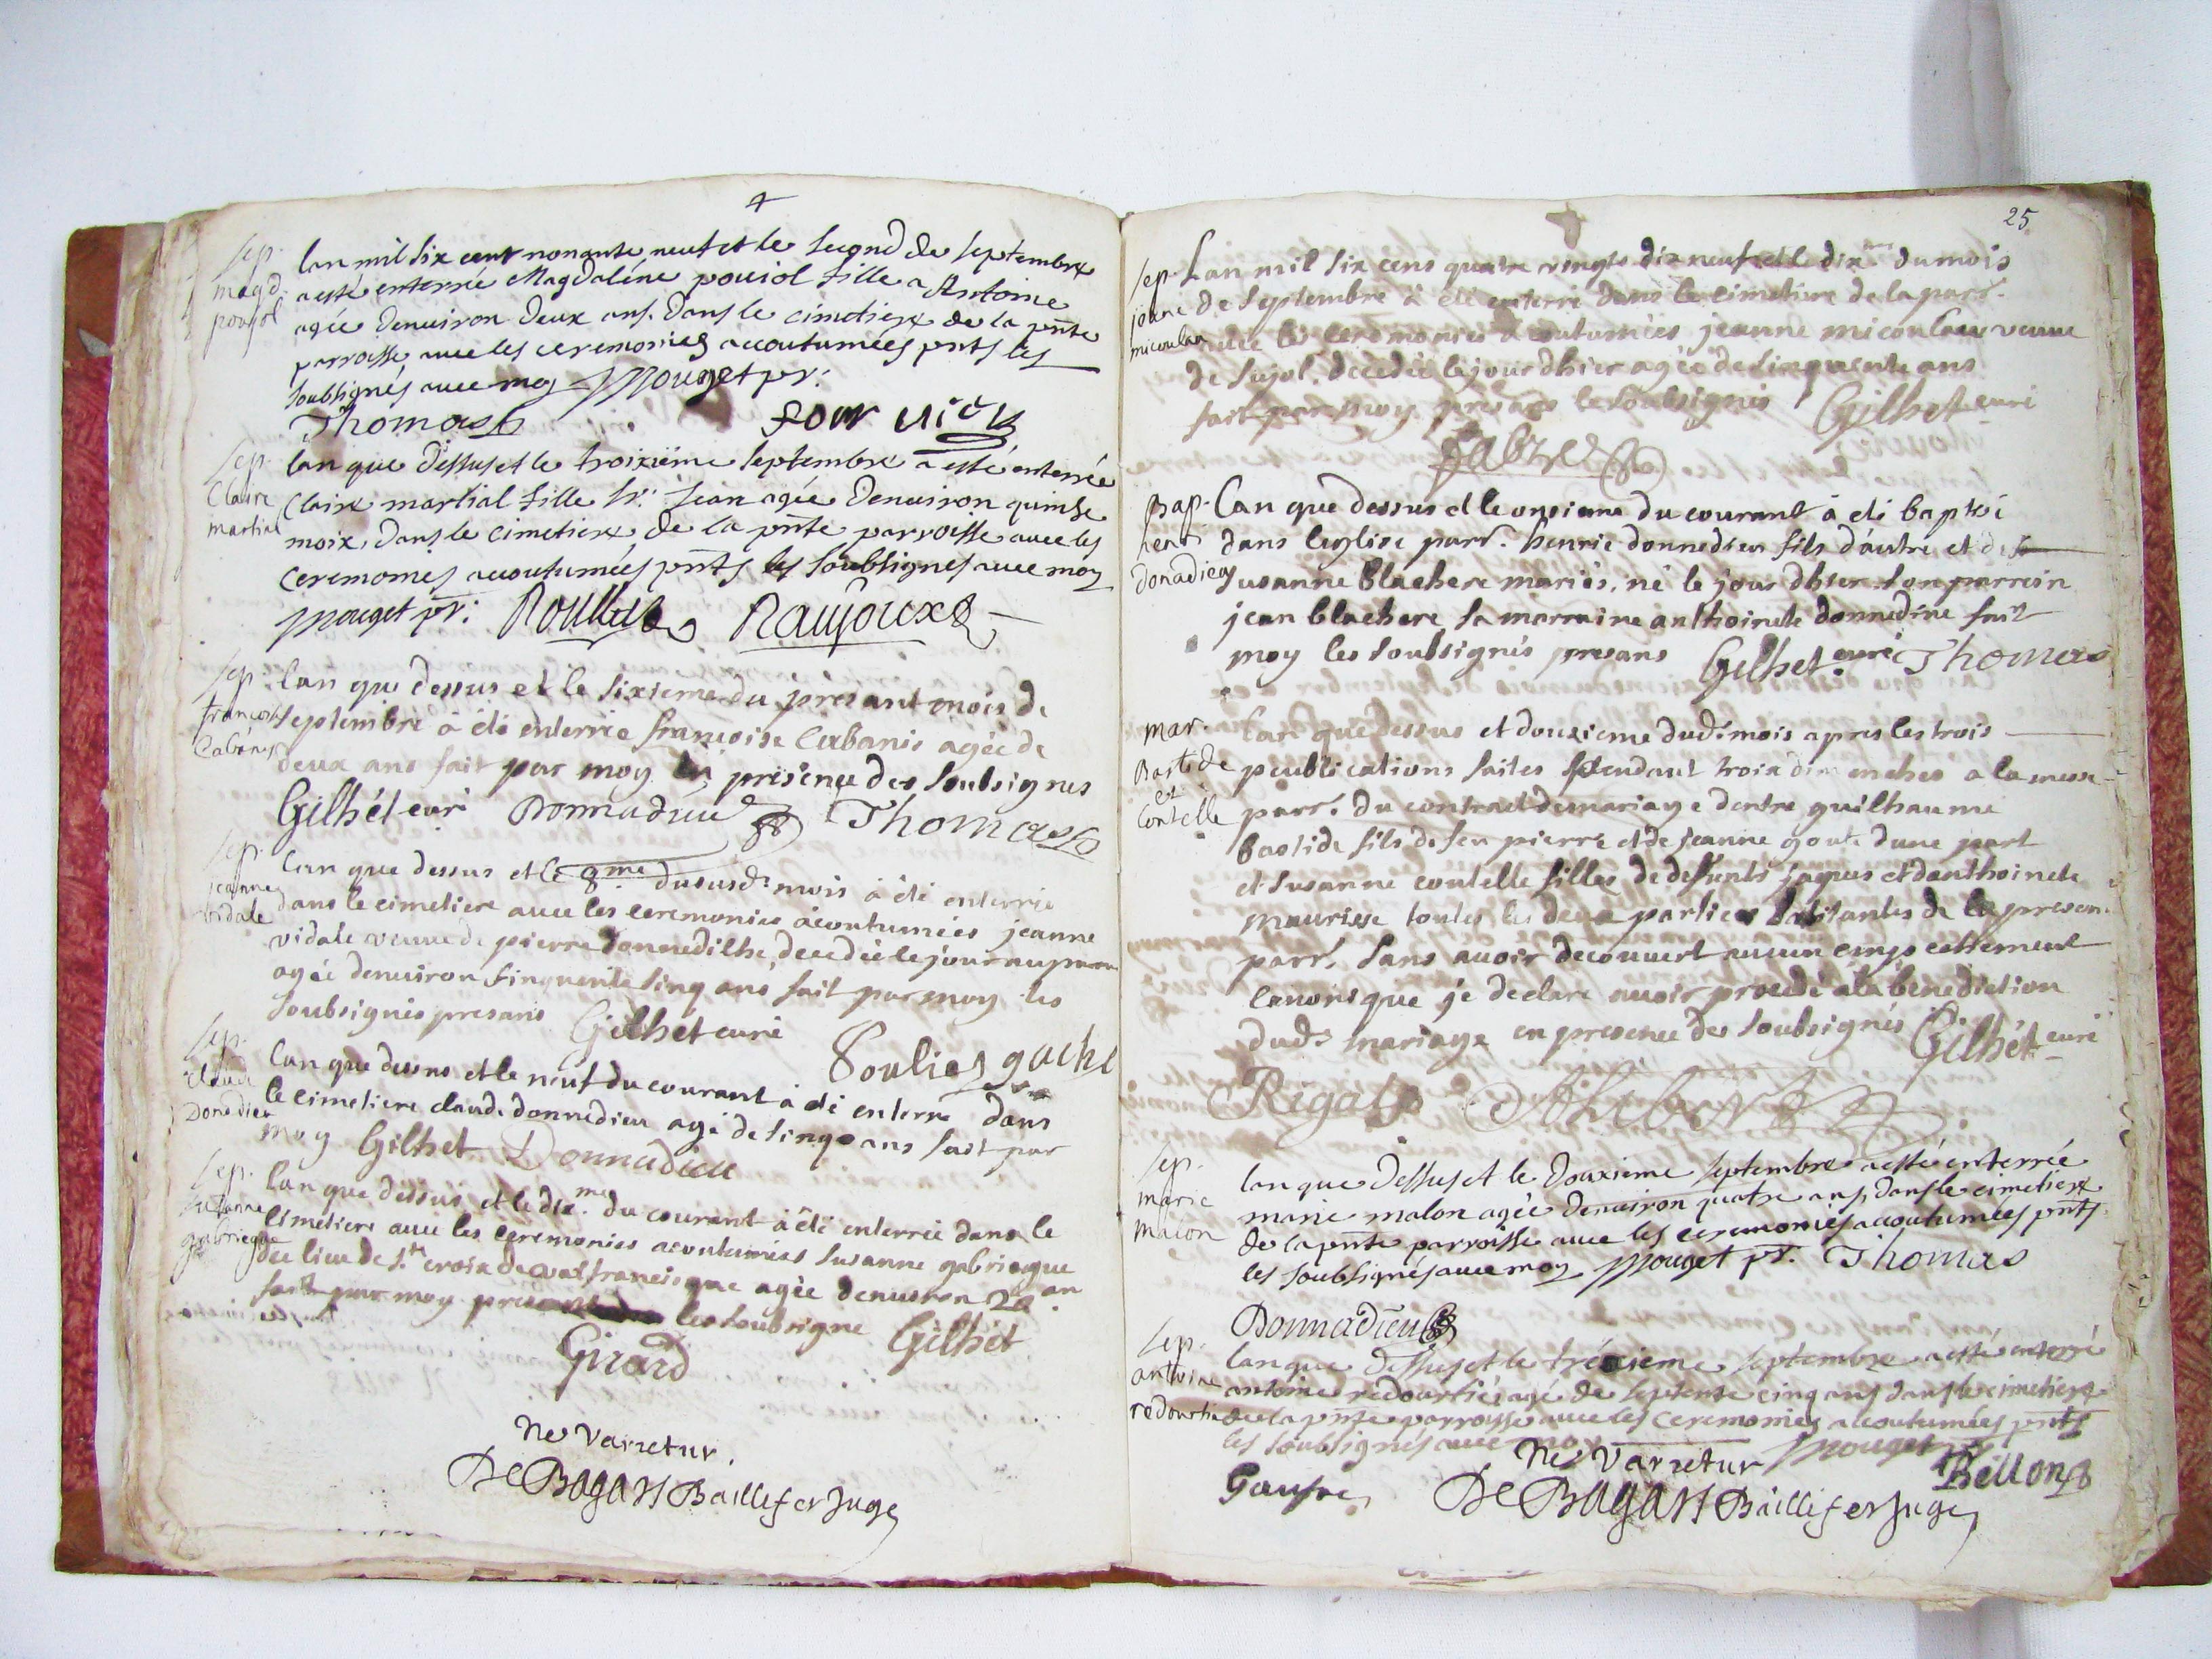 sep.
magd.
poujol
lan mil six cent nonante neuf et le second de septembre
a esté enterrée Magdaléne pouiol fille a Antoine
agée denuiron deux ans. dans le cimetiere de la pnte
parroisse auec les ceremonies accoutumées pnts les
soubsignés auec moy Mouget pr:
Thomas
sep.
Claire
martial
lan que dessus et le troixiéme septembre a esté enterrée
Claire martial fille sr. Jean agée denuiron quinse
moix, dans le cimetiere de la pnte parroisse auec les
ceremonies accoutumées pnts les soubsignes auec moy
Mouget pr:
sep.
françoise
lan que dessus et le sixieme du presant mois de
septembre à été enterrée françoise agée de
deux ans fait par moy en presence des soubsignes
Gilhet curé Donnadieu Thomas
sep.
jeanne
vidale
lan que dessus et le 8me du susd. mois à été enterrée
dans le cimetiere auec les ceremonies acoutumées jeanne
vidale veuue de pierre decedée le jour
agée denuiron sinquente sinq ans fait par moy les
soubsignés presans Gilhet curé
Soulier gache
sep.
claude
Donadieu
lan que dessus et le neuf du courant à été enterré dans
le cimetiere claude donnedieu agé de sinq ans fait par
moy Gilhet Donnadieu
sep.
susanne
gabriaque
lan que dessus et le dixme du courant à été enterrée dans le
cimetiere auec les ceremonies acoutumées susanne gabriaque
du lieu de ste croix de valfrancisque agée denuiron 20 an
fait par moy les soubsigne Gilhet
Girard
Ne Varietur.
De Bagars Baillif et Juge
25
sep.
jeane
micoulau
Lan mil six cens quatre vingts dix neuf et le dix du mois
de septembre à été enterrée dans le cimetiere de la parr.
auec les ceremonies acoutumées jeanne micoulau veuue
de sujol. decedée le jour dhier agée de sinquente ans
fait par moy presans le soubsignés Gilhet curé
Fabre
Bap.
henri
donadieu
Lan que dessus et le onsieme du courant à été baptisé
dans leglise parr. henrie donnedieu fils dautre et de
susanne blachere mariés, né le jour dhier son parrein
jean blachere sa marraine anthoinete donnedine fait
moy les soubsignés presans Gilhet curé Thomas
mar.
Bastide
et
Contelle
lan que dessus et dousieme dud. mois apres les trois
peublications faites pendant trois dimenches a la messe
parr. du contract de mariage dentre guilhaume
bastide fils de feu pierre et de jeanne goute dune part
et susanne contelle filles de defunts jaques et danthoinete
mauriesse toutes les deux parties habitantes de la presen.
parr. sans auoir decouuert aucun empeechement
canonique je declare auoir procedé à la benediction
dud. mariage en presence des soubsignés Gilhet curé
Rigal
sep.
marie
malon
lan que dessus et le douxieme septembre a esté enterrée
marie malon agée denuiron quatre ans, dans le cimetiere
de la pnte parroisse auec les ceremonies accoutumées pnts
les soubsignés auec moy Mouget pr. Thomas
Donnadieu
sep.
antoine
redourtié
lan que dessus et le tréxieme septembre a esté enterré
antoine redourtié agé de septente cinq ans dans le cimetiere
de la pnte parroisse auec les ceremonies accoutumées pnts
les soubsignés auec moy Mouget
Bellon
Ne Varietur
De Bagars Baillif et Juge